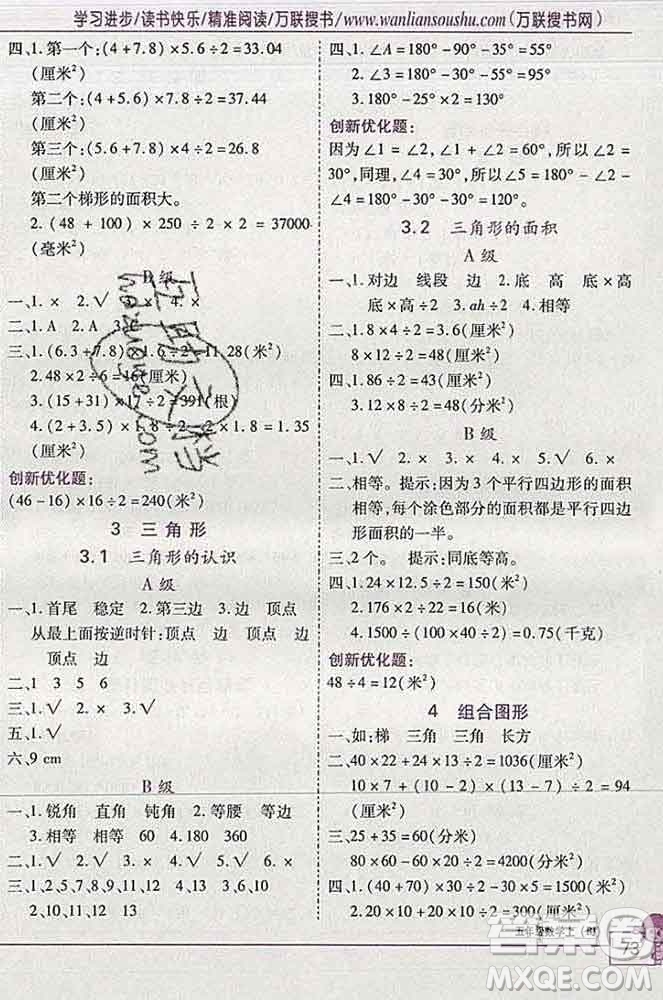 学习进步/读书快乐/精准阅读/万联搜书/www.wanliansoushu.com(万联搜书网)
四、1.第一个:(4+5.6)×7.8÷2=33.04
(厘米²)
第二个:(4+5.6)×7.8÷2=37.44
(厘米²)
第三个:(5.6+7.8)×4÷2=26.8
(厘米²)
第二个梯形的面积大。
2.(48+100)×250÷2×2=37000
(毫米²)
B级
一、1.× 2.√ 3.× 4.×
二、1.A 2.A 3.
三、1.(6.3+7.8)×1.6÷2=11.28(米²)
2.48×2÷6=16(厘米)
3.(15+31)×17÷2=391(根)
4.(2+3.5)×1.8÷2×2×1=1.35
(平方米²)
创新优化题:
(46-16)×16÷2=240(米²)
3 三角形
3.1 三角形的认识
A级
一、1.首尾 稳定 2.第三边 3.边 顶点
从最上面按逆时针:顶点 边 顶点 边
顶点 边
二、1 3 5 6
三、1.√ 2.× 3.× 4.× 3.√
五、1.√
六、9 cm
B级
一、1.锐角 直角 钝角 2.等腰 等边
3.相等 相等 60 4.180 360
二、1.√ 2.√ 3.√ 4.√ 5.√ 6.×
三、1、2、5、7、8、11、4、3、6、9、10
2、10、12 13
四、1.∠A=180°-90°-35°=55°
2.∠A=180°-30°-55°=95°
3.180°-25°×2=130°
创新优化题:
因为∠1=∠2,∠1+∠2=60°,所以∠2=
30°,同理,∠4=30°,所以∠5=180°-∠2-
∠4=180°-30°-30°=120°。
3.2 三角形的面积
A级
一、1.对边 线段 边 2.底 高 底×高
底×高÷2 3.ah÷2 4.相等
二、1.8×4÷2=3.6(厘米²)
8×12÷2=48(厘米²)
四、1.86÷2=43(分米²)
3.12×8÷2=48(分米²)
B级
一、1.√ 2.× 3.× 4.× 5.√
二、1.√ 2.相等。提示:因为3个平行四边形的面积
相等,每个涂色部分的面积都是平行四边
形面积的一半。
三、2个。 提示:同底等高。
四、1.24×12.5÷2=150(米²)
2.176×2÷22=16(米)
4.1500÷(100×40÷2)=0.75(千克)
创新优化题:
48÷4=12(米²)
4 组合图形
一、如:梯 三角 三角 长方
二、40×22+24×13÷2=1036(厘米²)
10×7+(10×2)×(13-7)÷2=94
(厘米²)
三、1.25+35=60(分米)
80×60-20×60÷2=4200(分米²)
四、1.(40+70)×30÷2-30×15=1200(米²)
2.20×10+20×10÷2=300(米²)
五年级数学上(BJ)
73
答案圈
MXQE.COM